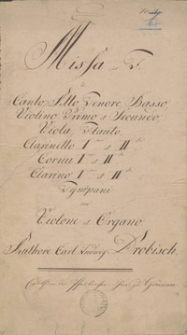 Missa in F.
à
Canto, Alto, Tenore, Basso
Violino Primo et Secundo
Viola, Flauto
Clarinetto I et II
Cornu I et II
Clarino I et II
Tympani
con
Violone et Organo
Authore Carl Ludwig Drobisch.